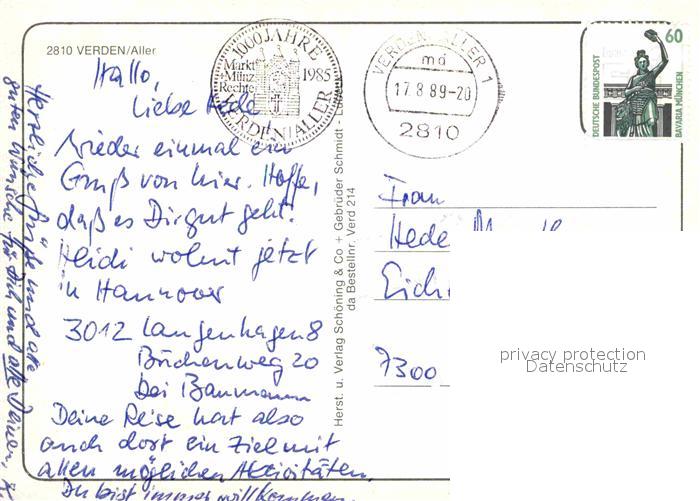 2810 VERDEN/Aller
1000 JAHRE
Markt
Münz
Rechte
1985
VERDEN/ALLER
VERDEN, ALLER 1
md
17.8.89-20
2810
60
DEUTSCHE BUNDESPOST
BAVARIA MÜNCHEN
Hallo,
Liebe Hede
Wieder einmal ein
Gruß von hier. Hoffe,
daß es Dir gut geht!
Heidi wohnt jetzt
in Hannover
3012 Langenhagen 8
Buchenweg 20
bei Baumann
Deine Reise hat also
auch dort ein Ziel mit
allen möglichen Aktivitäten.
Du bist immer willkommen.
Herzliche Grüße und alle
guten Wünsche für Dich und alle Deinen,
Herst. u. Verlag Schöning & Co + Gebrüder Schmidt -
da Bestellnr. Verd 214
Frau
Hede
Eich
7300
privacy protection
Datenschutz